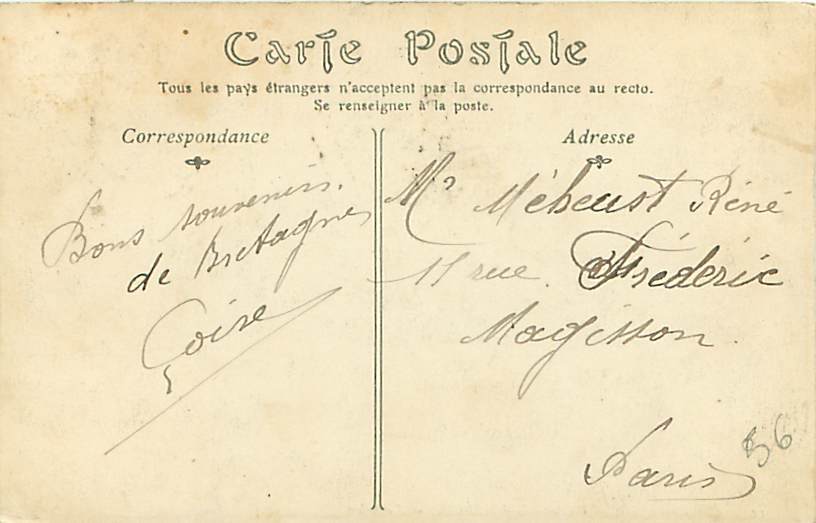 Carte Postale
Tous les pays étrangers n'acceptent pas la correspondance au recto.
Se renseigner à la poste.
Correspondance
Adresse
Bons souvenirs.
de Bretagne
Mr Méheust Réné
11 rue. Fréderic
Magisson.
Paris
56